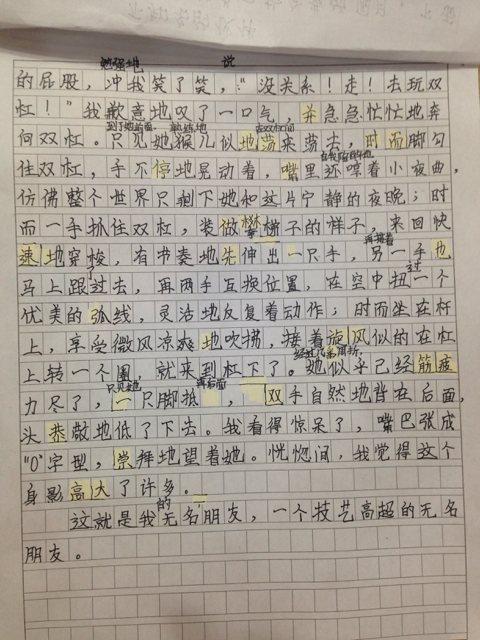 的屁股，勉强地冲我笑了笑，说："没关系！走！去玩双
杠！"我歉意地叹了一口气，并急急忙忙地奔
向双杠。只见她熟练地猴儿似地在双杠间荡来荡去，时而脚勾
住双杠，手不停地晃动着，嘴里还哼着小夜曲，
仿佛整个世界只剩下她和这片宁静的夜晚；时
而一手抓住双杠，装做梯子的样子，来回快
速地穿梭，有节奏地先伸出一只手，另一手也
马上跟了过去，再两手互换位置，在空中扭过一个
优美的弧线，灵活地反复着动作；时而坐在杆
上，享受微风凉爽地吹拂，接着旋风似的在杠
上转一个圈，就来到杠下了。她似乎已经筋疲
力尽了，只见她一只脚抵，双手自然地背在后面，
头恭敬地低了下去。我看得惊呆了，嘴巴张成
"O"字型，崇拜地望着她。恍惚间，我觉得这个
身影高大了许多。
这就是我的无名朋友，一个技艺高超的无名
朋友。